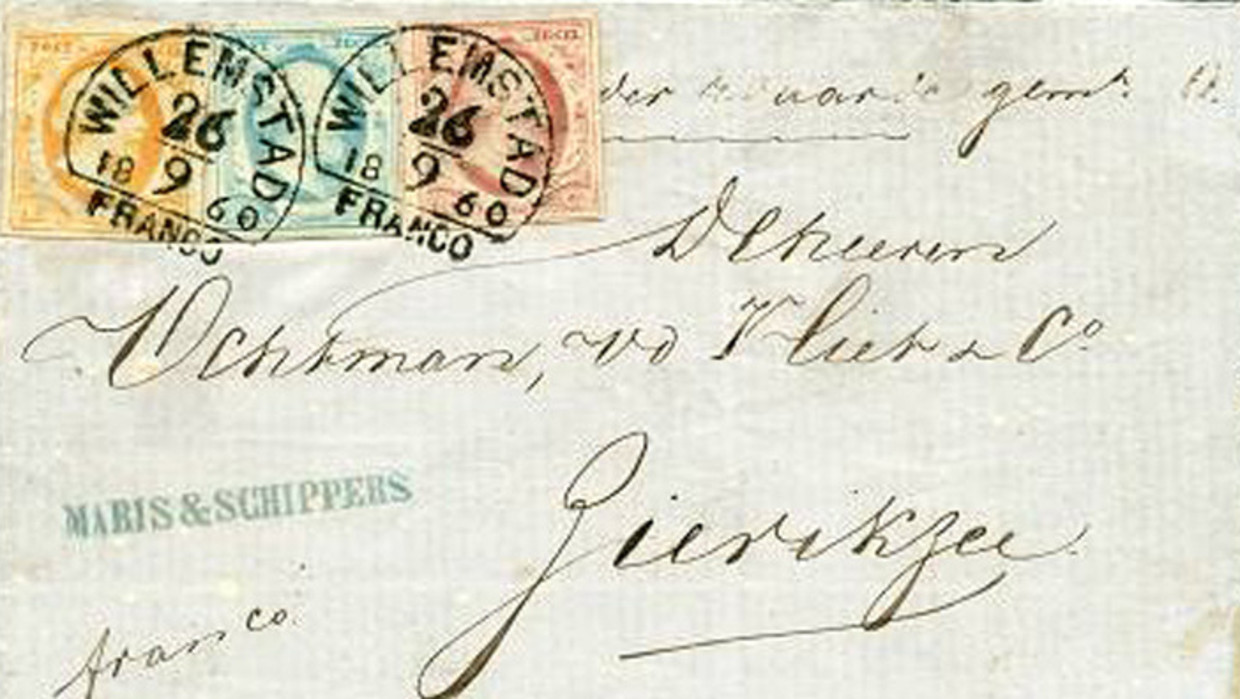 WILLEMSTAD
26
9
18 60
FRANCO
WILLEMSTAD
26
9
18 60
FRANCO
DeHeeren
Ochtman, vd Vliet & Co
Zierikzee
MARIS & SCHIPPERS
franco